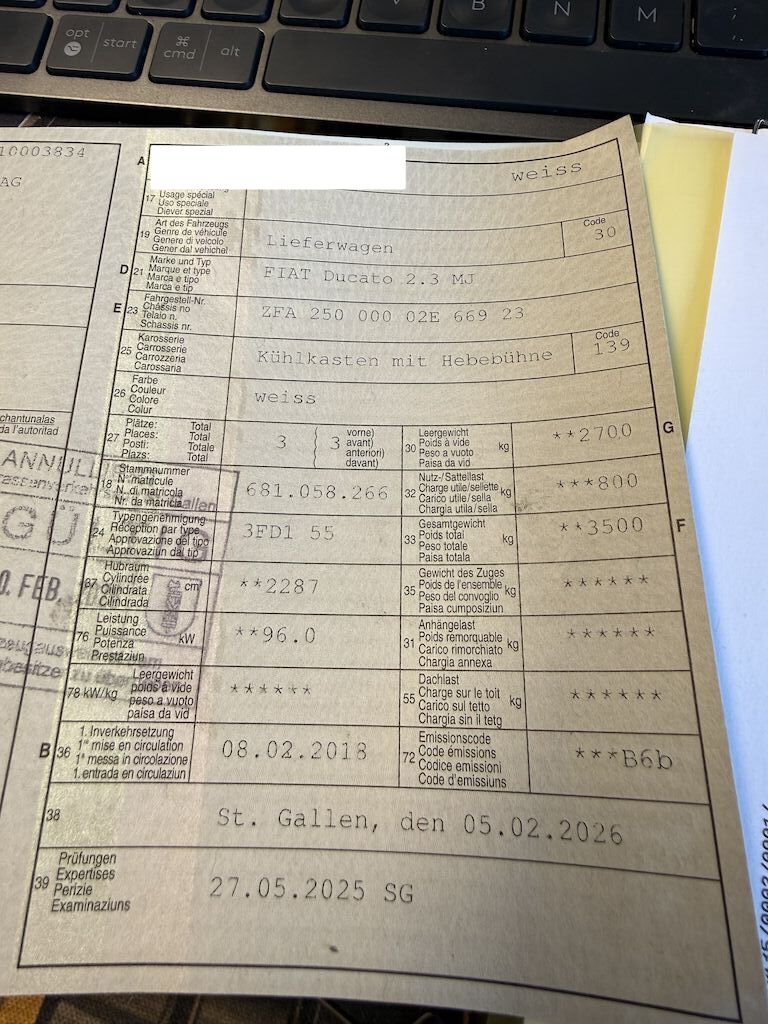 opt
start
⌘
cmd
alt
V
B
N
M
;
,
10003834
AG
A
weiss
17
Usage spécial
Uso speciale
Diever spezial
19
Art des Fahrzeugs
Genre de véhicule
Genere di veicolo
Gener dal vehichel
Lieferwagen
Code
30
D 21
Marke und Typ
Marque et type
Marca e tipo
Marca e tip
FIAT Ducato 2.3 MJ
E 23
Fahrgestell-Nr.
Châssis no
Telaio n.
Schassis nr.
ZFA 250 000 02E 669 23
25
Karosserie
Carrosserie
Carrozzeria
Carossaria
Kühlkasten mit Hebebühne
Code
139
26
Farbe
Couleur
Colore
Colur
weiss
27
Plätze: Total
Places: Total
Posti: Totale
Plazs: Total
3 { 3
vorne)
avant)
anteriori)
davant)
30
Leergewicht
Poids à vide
Peso a vuoto
Paisa da vid
kg
**2700
G
18
Stammnummer
N° matricule
N. di matricola
Nr. da matricla
681.058.266
32
Nutz-/Sattellast
Charge utile/sellette
Carico utile/sella
Chargia utila/sella
kg
***800
24
Typengenehmigung
Réception par type
Approvazione del tipo
Approvaziun dal tip
3FD1 55
33
Gesamtgewicht
Poids total
Peso totale
Paisa totala
kg
**3500
F
37
Hubraum
Cylindrée
Cilindrata
Cilindrada
cm³
**2287
35
Gewicht des Zuges
Poids de l'ensemble
Peso del convoglio
Paisa cumposiziun
kg
******
76
Leistung
Puissance
Potenza
Prestaziun
kW
**96.0
31
Anhängelast
Poids remorquable
Carico rimorchiato
Chargia annexa
kg
******
78 kW/kg
Leergewicht
poids à vide
peso a vuoto
paisa da vid
******
55
Dachlast
Charge sur le toit
Carico sul tetto
Chargia sin il tetg
kg
******
B 36
1. Inverkehrsetzung
1re mise en circulation
1a messa in circolazione
1. entrada en circulaziun
08.02.2018
72
Emissionscode
Code émissions
Codice emissioni
Code d'emissiuns
***B6b
38
St. Gallen, den 05.02.2026
39
Prüfungen
Expertises
Perizie
Examinaziuns
27.05.2025 SG
chantunalas
da l'autoritad
ANNULL
GÜ
0. FEB.